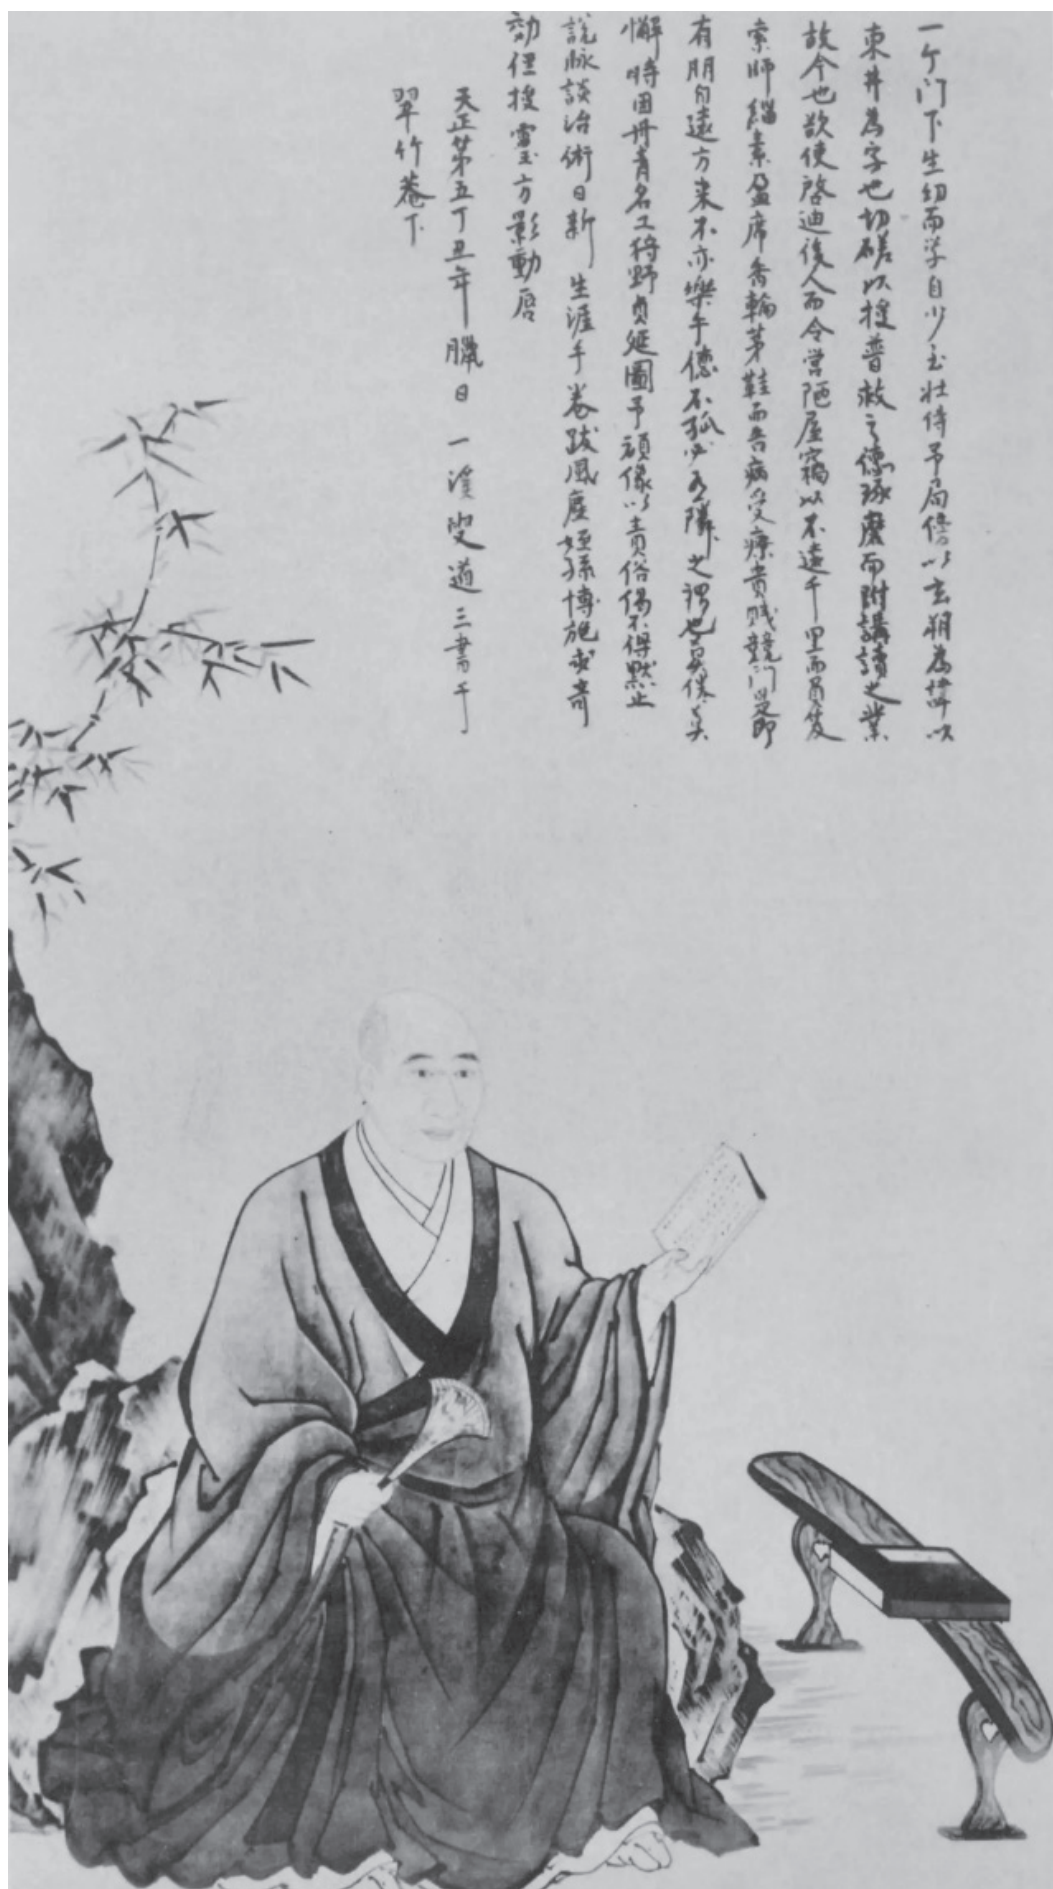 一ケ门下生幼而学自少至壮侍予局傍以玄朔為諱以
東井為字也切磋以授普救之德琢磨而附講讀之業
故今也欲使啓迪後人而令営陋屋窃以不遠千里而負笈
索師緇素盈席香輪茅鞋而告病受療貴賎競門是即
有朋自遠方来不亦樂乎德不孤必有隣之謂也
懈時因丹青名工狩野貞延圖予頑像以責俗偈不得黙止
說脉談治術日新生涯手卷跋風塵姪孫博施求奇
効但授靈方影動唇
天正第五丁丑年臘日一溪叟道三書于
翠竹菴下